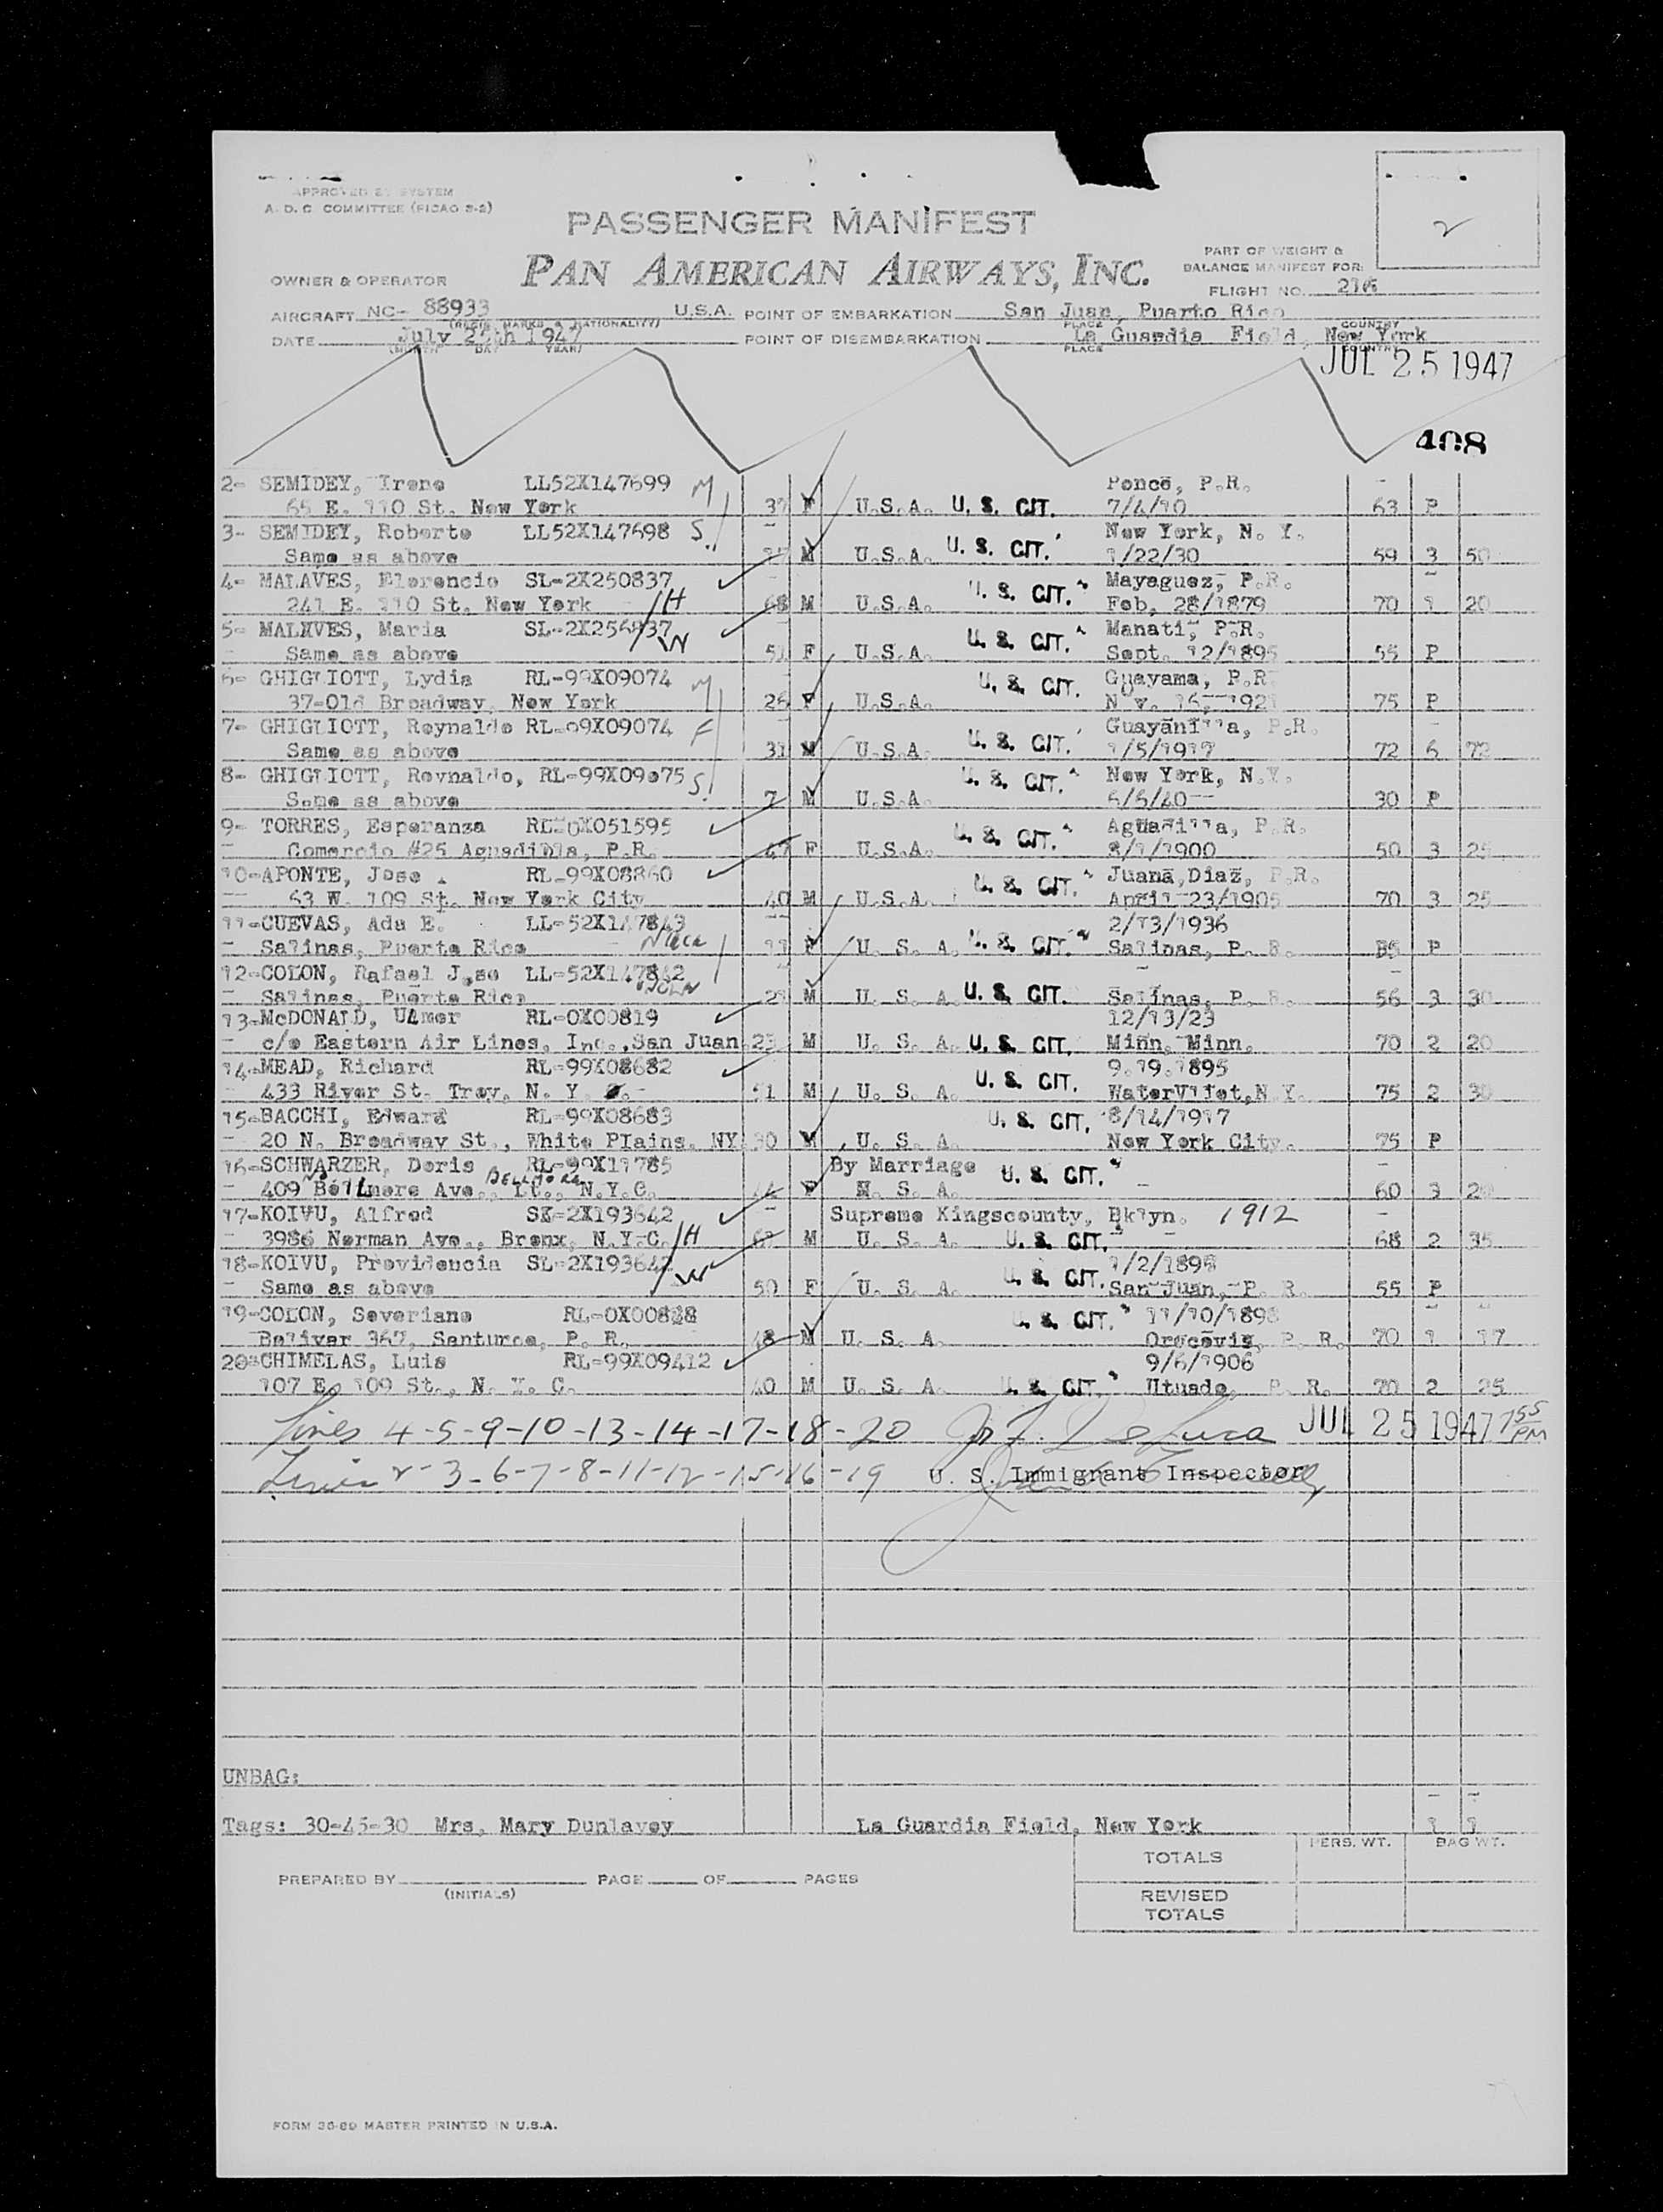 APPROVED BY SYSTEM
A. D. C. COMMITTEE (FICAO 8-2)
PASSENGER MANIFEST
2
PAN AMERICAN AIRWAYS, INC.
PART OF WEIGHT &
BALANCE MANIFEST FOR:
OWNER & OPERATOR
FLIGHT NO. 216
AIRCRAFT NC- 88933 U.S.A. POINT OF EMBARKATION San Juan, Puerto Rico
(REGIS. MARKS & NATIONALITY) PLACE COUNTRY
DATE July 25th 1947 POINT OF DISEMBARKATION La Guardia Field, New York
(MONTH DAY YEAR) PLACE COUNTRY
JUL 25 1947
408
2- SEMIDEY, Irene LL52X147699 M Ponce, P.R.
65 E. 110 St. New York 37 F U.S.A. U. S. CIT. 7/4/10 63 P
3- SEMIDEY, Roberto LL52X147698 S. New York, N. Y.
Same as above M U.S.A. U. S. CIT. 1/22/30 59 3 50
4- MALAVES, Florencio SL-2X250837 Mayaguez, P.R.
241 E. 110 St. New York H 68 M U.S.A. U. S. CIT. Feb, 28/1879 70 1 20
5- MALAVES, Maria SL-2X256837 Manati, P.R.
Same as above W 51 F U.S.A. U. S. CIT. Sept. 12/1895 55 P
6- GHIGLIOTT, Lydia RL-99X09074 M Guayama, P.R.
37-Old Broadway, New York 26 F U.S.A. U. S. CIT. Nov. 16, 1921 75 P
7- GHIGLIOTT, Reynaldo RL-99X09074 F Guayanilla, P.R.
Same as above 31 M U.S.A. U. S. CIT. 1/5/1917 72 6 72
8- GHIGLIOTT, Reynaldo, RL-99X09075 S. New York, N.Y.
Same as above 7 M U.S.A. U. S. CIT. 6/6/40 30 P
9- TORRES, Esperanza RL-0X051595 Aguadilla, P.R.
Comercio #25 Aguadilla, P.R. 47 F U.S.A. U. S. CIT. 8/1/1900 50 3 25
10-APONTE, Jose RL-99X08860 Juana Diaz, P.R.
63 W. 109 St. New York City 40 M U.S.A. U. S. CIT. April 23/1905 70 3 25
11-CUEVAS, Ada E. LL-52X147843 2/13/1936
Salinas, Puerto Rico Niece 11 F U. S. A. U. S. CIT. Salinas, P. R. 85 P
12-COLON, Rafael Jose LL-52X147842
Salinas, Puerto Rico M U. S. A. U. S. CIT. Salinas, P. R. 56 3 30
13-McDONALD, Ulmer RL-0X00819 12/13/23
c/o Eastern Air Lines, Inc., San Juan 23 M U. S. A. U. S. CIT. Minn, Minn. 70 2 20
14-MEAD, Richard RL-99X08682 9.19.1895
433 River St. Troy, N. Y. 51 M U. S. A. U. S. CIT. WaterVliet, N Y. 75 2 30
15-BACCHI, Edward RL-99X08683 8/14/1917
20 N. Broadway St., White Plains, NY 30 M U. S. A. U. S. CIT. New York City. 75 P
16-SCHWARZER, Doris RL-99X11785 By Marriage
409 Bellmore Ave., BELLMORE Lt., N.Y.C. 44 F U. S. A. U. S. CIT. 60 3 20
17-KOIVU, Alfred SX-2X193642 Supreme Kingscounty, Bklyn. 1912
3986 Norman Ave., Bronx, N.Y.C. H M U. S. A. U. S. CIT. 68 2 35
18-KOIVU, Providencia SL-2X193642 1/2/1895
Same as above W 50 F U. S. A. U. S. CIT. San Juan, P. R. 55 P
19-COLON, Severiano RL-0X00828 11/10/1898
Bolivar 367, Santurce, P. R. 48 M U. S. A. U. S. CIT. Orocovis, P. R. 70 1 17
20-CHIMELAS, Luis RL-99X09412 9/6/1906
107 E. 109 St., N. Y. C. 40 M U. S. A. U. S. CIT. Utuado, P. R. 70 2 25
Lines 4-5-9-10-13-14-17-18-20 JUL 25 1947 7 55 PM
Lines 2-3-6-7-8-11-12-15-16-19 U. S. Immigrant Inspector
UNBAG:
Tags: 30-45-30 Mrs. Mary Dunlavey La Guardia Field, New York 1 1
PERS. WT. BAG WT.
TOTALS
PREPARED BY PAGE OF PAGES
(INITIALS)
REVISED
TOTALS
FORM 36-89 MASTER PRINTED IN U.S.A.